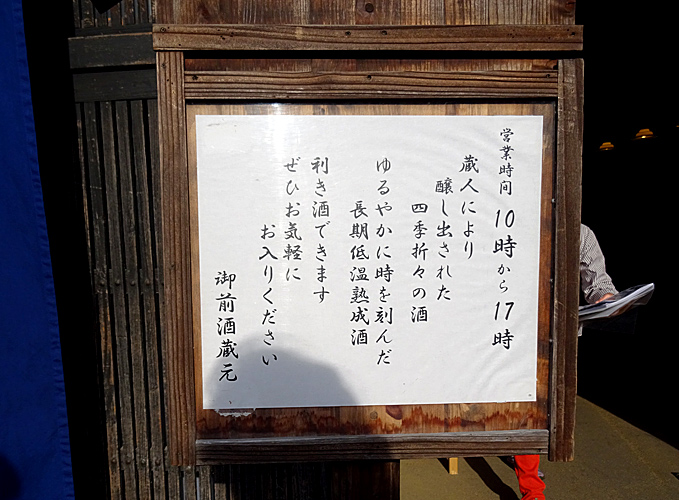 営業時間 10時から17時
蔵人により
醸し出された
四季折々の酒
ゆるやかに時を刻んだ
長期低温熟成酒
利き酒できます
ぜひお気軽に
お入りください
御前酒蔵元